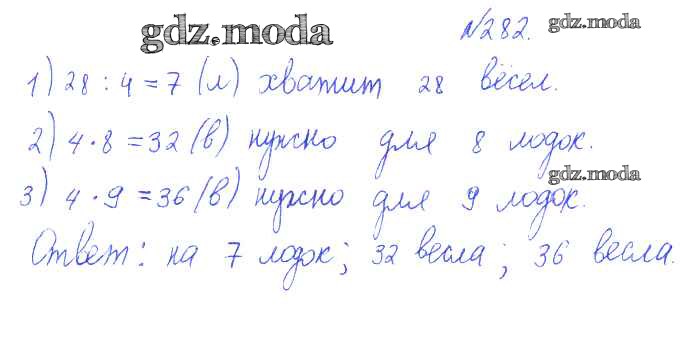 gdz.moda №282. gdz.moda
1) 28 : 4 = 7 (л) хватит 28 вёсел.
2) 4 · 8 = 32 (в) нужно для 8 лодок.
gdz.moda
3) 4 · 9 = 36 (в) нужно для 9 лодок.
Ответ: на 7 лодок; 32 весла; 36 весла.